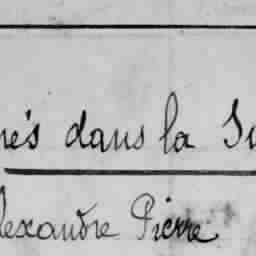 nés dans la Su
lexandre Pierre